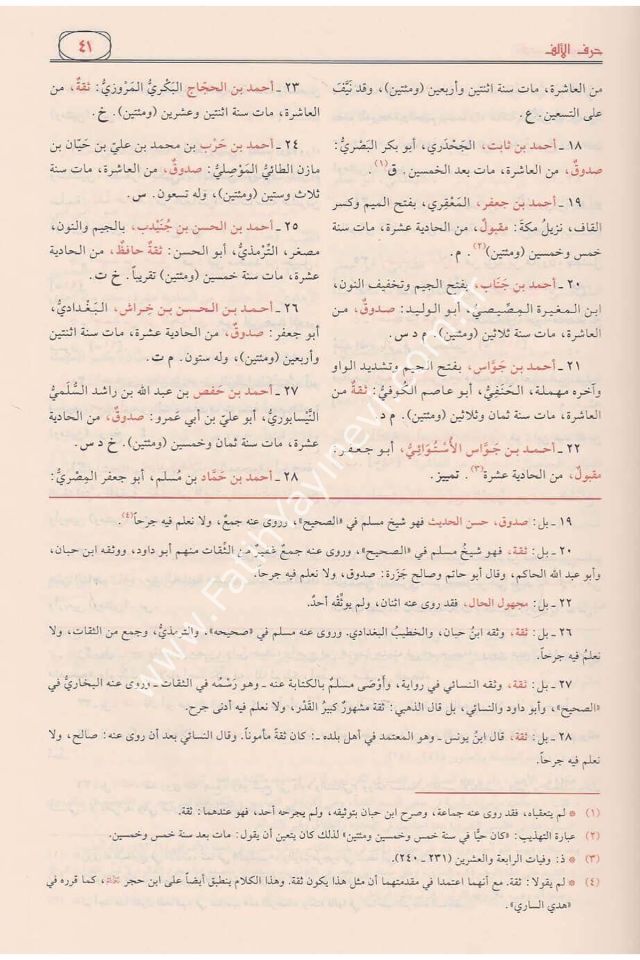 حرف الألف
٤١
من العاشرة، مات سنة اثنتين وأربعين (ومئتين)، وقد نَيَّفَ
على التسعين. ع.
١٨ ـ أحمد بن ثابت، الجَحْدَري، أبو بكر البَصْريُّ:
صدوقٌ، من العاشرة، مات بعد الخمسين. ق(١).
١٩ ـ أحمد بن جعفر، المَعْقِري، بفتح الميم وكسر
القاف، نزيلُ مكةَ: مقبولٌ، من الحادية عشرة، مات سنة
خمس وخمسين (ومئتين)(٢). م.
٢٠ ـ أحمد بن جَنَاب، بفتح الجيم وتخفيف النون،
ابن المغيرة المِصِّيصي، أبو الوليد: صدوقٌ، من
العاشرة، مات سنة ثلاثين (ومئتين). م د س.
٢١ ـ أحمد بن جَوَّاس، بفتح الجيم وتشديد الواو
وآخره مهملة، الحَنَفيُّ، أبو عاصم الكُوفيُّ: ثقةٌ من
العاشرة، مات سنة ثمان وثلاثين (ومئتين). م د.
٢٢ ـ أحمد بن جَوَّاس الأُسْتُوَائِيُّ، أبو جعفر:
مقبولٌ، من الحادية عشرة(٣). تمييز.
٢٣ ـ أحمد بن الحجّاج البَكْريُّ المَرْوَزِيُّ: ثقةٌ، من
العاشرة، مات سنة اثنتين وعشرين (ومئتين). خ.
٢٤ ـ أحمد بن حَرْب بن محمد بن عليّ بن حَيَّان بن
مازن الطائيُّ المَوْصِليُّ: صدوقٌ، من العاشرة، مات سنة
ثلاث وستين (ومئتين)، وله تسعون. س.
٢٥ ـ أحمد بن الحسن بن جُنَيْدِب، بالجيم والنون،
مصغر، التِّرْمذيُّ، أبو الحسن: ثقةٌ حافظٌ، من الحادية
عشرة، مات سنة خمسين (ومئتين) تقريباً. خ ت.
٢٦ ـ أحمد بن الحسن بن خِراش، البَغْداديُّ،
أبو جعفر: صدوقٌ، من الحادية عشرة، مات سنة اثنتين
وأربعين (ومئتين)، وله ستون. م ت.
٢٧ ـ أحمد بن حَفص بن عبد الله بن راشد السُّلَميُّ
النَّيْسابوريُّ، أبو عليّ بن أبي عَمرو: صدوقٌ، من الحادية
عشرة، مات سنة ثمان وخمسين (ومئتين). خ د س.
٢٨ ـ أحمد بن حَمَّاد بن مُسلم، أبو جعفر المِصْريُّ:
١٩ ـ بل: صدوق، حسن الحديث فهو شيخ مسلم في «الصحيح»، وروى عنه جمعٌ، ولا نعلم فيه جرحاً(٤).
٢٠ ـ بل: ثقة، فهو شيخُ مسلم في «الصحيح»، وروى عنه جمعٌ غفيرٌ من الثِّقات منهم أبو داود، ووثقه ابن حبان،
وأبو عبد الله الحاكم، وقال أبو حاتم وصالح جَزَرة: صدوق، ولا نعلم فيه جرحاً.
٢٢ ـ بل: مجهول الحال، فقد روى عنه اثنان، ولم يوثِّقه أحدٌ.
٢٦ ـ بل: ثقة، وثقه ابنُ حبان، والخطيب البغدادي. وروى عنه مسلم في «صحيحه»، والترمذيُّ، وجمع من الثقات، ولا
نعلمُ فيه جرحاً.
٢٧ ـ بل: ثقة، وثقه النسائي في رواية، وأوْصَى مسلمٌ بالكتابة عنه ـ وهو رَسْمُه في الثقات ـ وروى عنه البخاريُّ في
«الصحيح»، وأبو داود والنسائي، بل قال الذهبي: ثقة مشهورٌ كبيرُ القَدْر، ولا نعلم فيه أدنى جرح.
٢٨ ـ بل: ثقة، قال ابنُ يونس ـ وهو المعتمد في أهل بلده ـ: كان ثقةً مأموناً. وقال النسائي بعد أن روى عنه: صالح، ولا
نعلم فيه جرحاً.
(١) * لم يتعقباه، فقد روى عنه جماعة، وصرح ابن حبان بتوثيقه، ولم يجرحه أحد، فهو عندهما: ثقة.
(٢) عبارة التهذيب: «كان حيًّا في سنة خمس وخمسين ومئتين» لذلك كان يتعين أن يقول: مات بعد سنة خمس وخمسين.
(٣) * ذ: وفيات الرابعة والعشرين (٢٣١ ـ ٢٤٠).
(٤) * لم يقولا: ثقة. مع أنهما اعتمدا في مقدمتهما أن مثل هذا يكون ثقة. وهذا الكلام ينطبق أيضاً على ابن حجر، كما قرره في
«هدي الساري».
www.Fatihyayinevi.com.tr